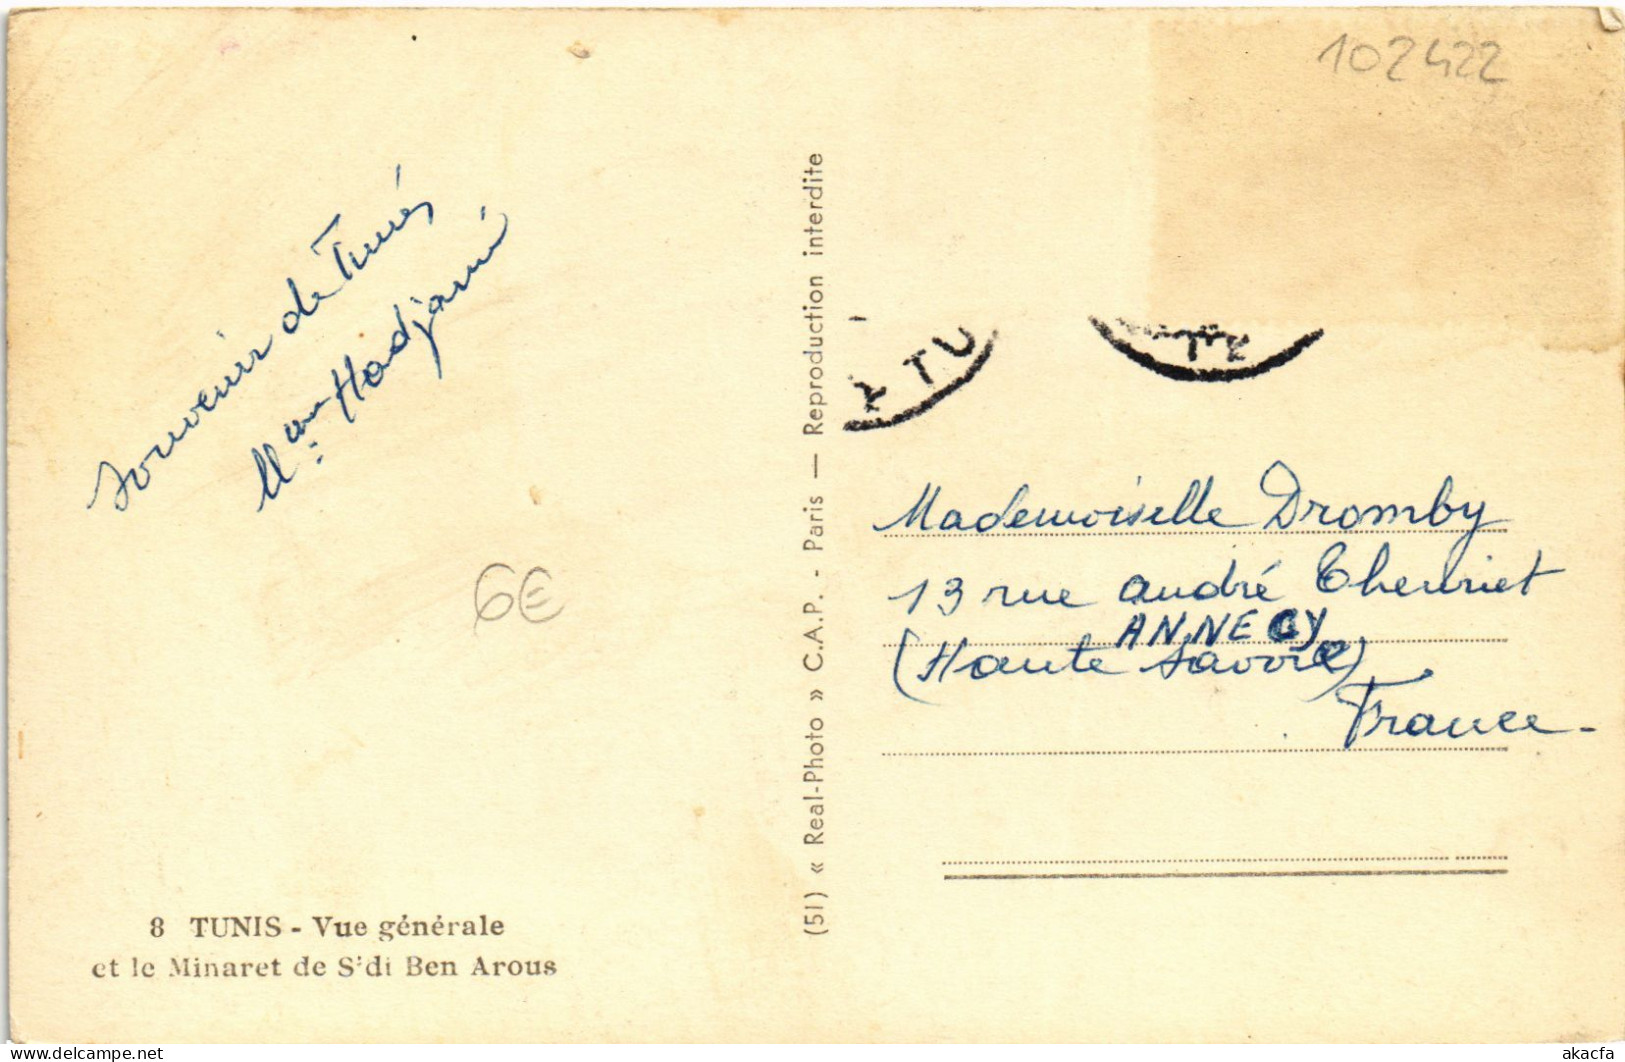 102422
souvenir de Tunis
Hadjami
6€
8 TUNIS - Vue générale
et le Minaret de S'di Ben Arous
(51) « Real-Photo » C.A.P. - Paris — Reproduction interdite
TU
Mademoiselle Dromby
13 rue andré Theuriet
ANNECY
(Haute Savoie)
France -
akacfa